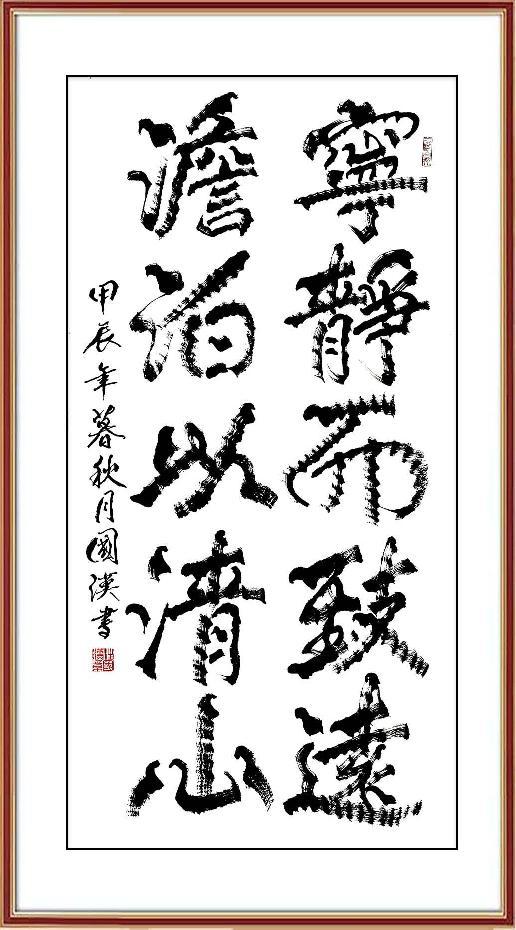 寧靜而致遠
澹泊以清心
甲辰年暮秋月國漢書